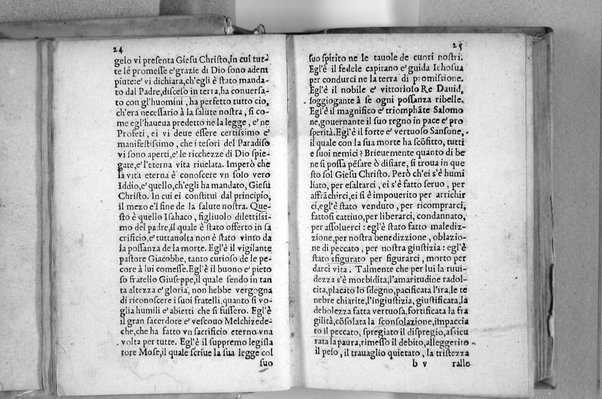 24
gelo vi presenta Giesu Christo, in cui tut-
te le promesse e'grazie di Dio sono adem
piute:e' vi dichiara, ch'egli è stato manda-
to dal Padre, disceso in terra, ha conversa-
to con gl'huomini, ha perfetto tutto cio,
ch'era necessario à la salute nostra, si co-
me egl'hauea predetto ne la legge, e' ne
Profeti, ei vi deue essere certissimo e'
manifestissimo, che i tesori del Paradiso
vi sono aperti, e' le ricchezze di Dio spie-
gate, e'l'eterna vita riuelata. Imperò che
la vita eterna è conoscere vn solo vero
Iddio, e' quello, ch'egli ha mandato, Giesu
Christo. In cui ei constitui dal principio,
il mezo e'l fine de la salute nostra. Que-
sto è quello Isahaco, figliuolo dilettissi-
mo del padre, il quale è stato offerto in sa
crificio, e' tuttauolta non è stato vinto da
la possanza de la morte. Egl'è il vigilante
pastore Giacobbe, tanto curioso de le pe-
core à lui comesse. Egl'è il buono e' pieto
so fratello Giuseppe, il quale sendo in tan
ta altezza e' gloria, non hebbe vergogna
di riconoscere i suoi fratelli, quanto si vo
glia humili e' abietti che si fussero. Egl'è
il gran sacerdote e' vescouo Melchizede-
che, che ha fatto vn sacrificio eterno, vna
volta per tutte. Egl'è il supremo legisla
tore Mose, il quale scriue la sua legge col
suo
25
suo spirito ne le tauole de cuori nostri.
Egl'è il fedele capitano e' guida Ichosua
per condurci ne la terra di promissione.
Egl'è il nobile e' vittorioso Re Dauid,
soggiogante à se ogni possanza ribelle.
Egl'è il magnifico e' triomphāte Salomo
ne, gouernante il suo regno in pace e' pro
sperità. Egl'è il forte e' vertuoso Sansone,
il quale con la sua morte ha scōfitto, tutti
e suoi nemici? Brieuemente quanto di be
ne si possa pēsare ò disiare, si troua in que
sto sol Giesu Christo. Però ch'ei s'è humi
liato, per esaltarci, ei s'è fatto seruo, per
affrāchirci, ei si è impouerito per arrichir
ci, egl'è stato venduto, per ricomprarci,
fattosi cattiuo, per liberarci, condannato,
per assoluerci : egl'è stato fatto maledit-
zione, per nostra benedizzione, oblazio-
ne di peccato, per nostra giustizia : egl'è
stato sfigurato per figurarci, morto per
darci vita. Talmente che per lui la ruui-
dezza s'è morbidita, l'amaritudine radol-
cita, placato lo sdegno, pacificata l'ira, le te
nebre chiarite, l'ingiustizia, giustificata, la
debolezza fatta vertuosa, fortificata la fra
gilità, cōsolata la sconsolazione, impaccia
to il peccato, spregiato il dispregio, assicu
rata la paura, rimesso il debito, alleggerito
il peso, il trauaglio quietato, la tristezza
b v ralle